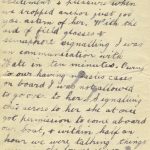 excitement & pleasure when
we dropped anchor just
was astern of her. With the
aid of field glasses &
semaphore signalling I was
in communication with
Nate in ten minutes. Owing
to our having measles cases
on board I was not allowed
to go over to her, & signalling
this across to her she at once
got permission to come aboard
our boat, & within half an
hour we were talking things